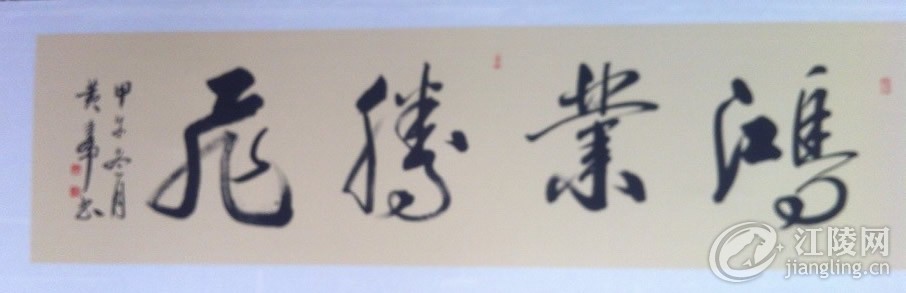 鴻業騰飛
甲午冬月
黄
江陵网
jiangling.cn